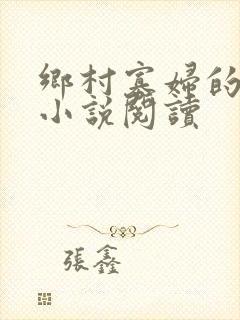 鄉村寡婦的
小說閱讀
張鑫